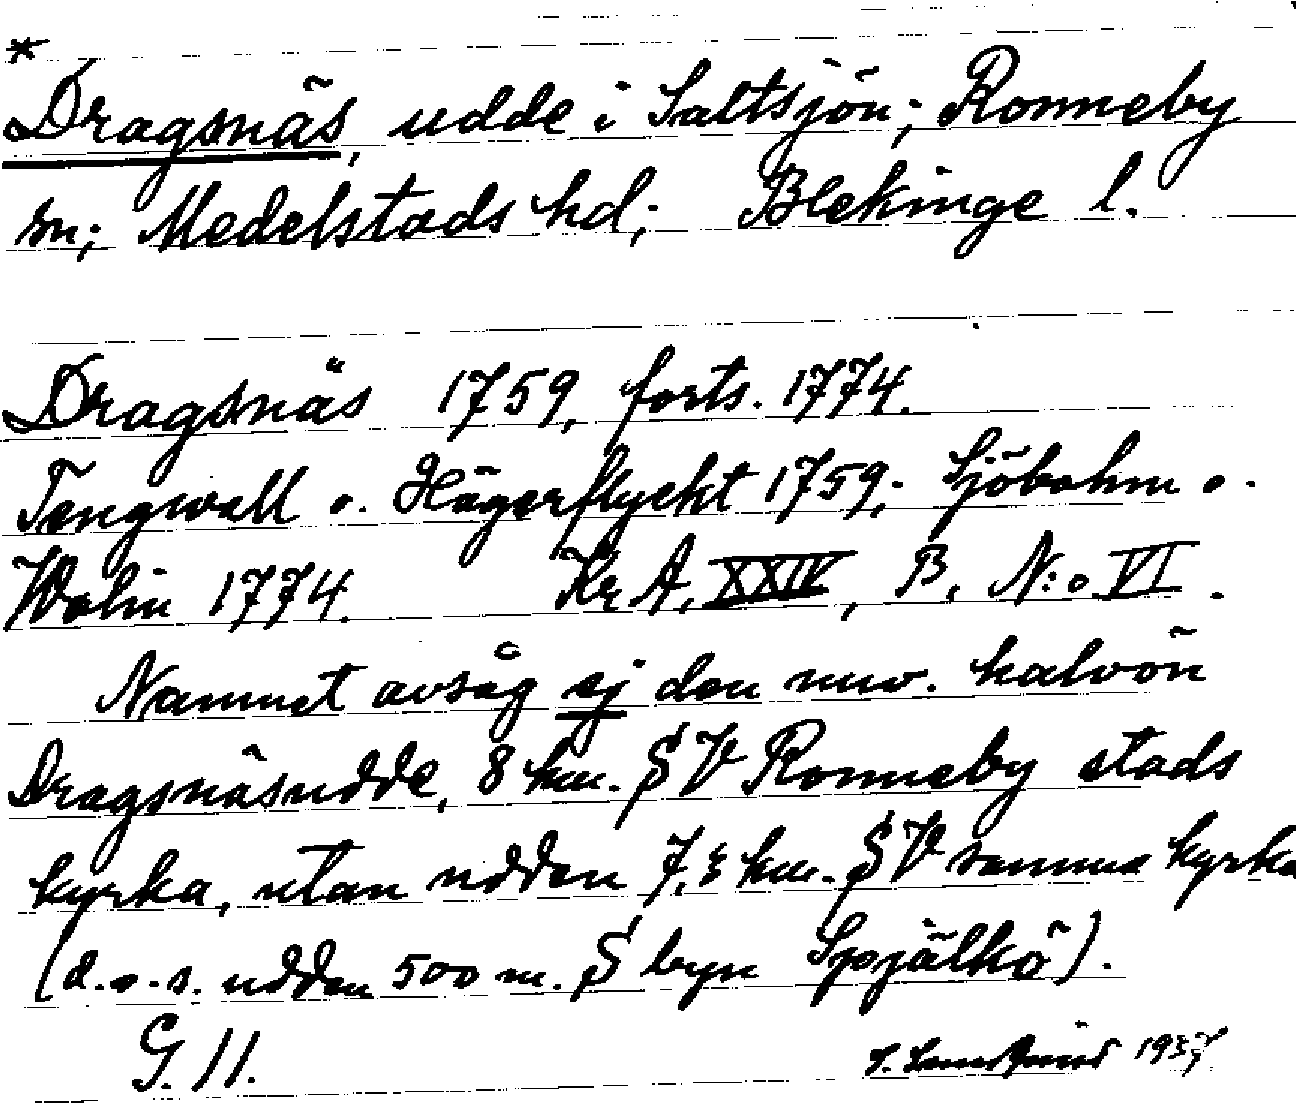 *
Dragsnäs, udde i Saltsjön; Ronneby
sn; Medelstads hd; Blekinge l.
Dragsnäs 1759, forts. 1774.
Tengwall o. Hägerflycht 1759; Sjöbohm o.
Wolin 1774. Kr A, XXIV, B, N:o VI.
Namnet avsåg ej den nuv. halvön
Dragsnäsudde, 8 km. SV Ronneby stads
kyrka, utan udden 7,5 km. SV samma kyrka
(d.v.s. udden 500 m. S byn Spjälkö).
G. 11. 1937